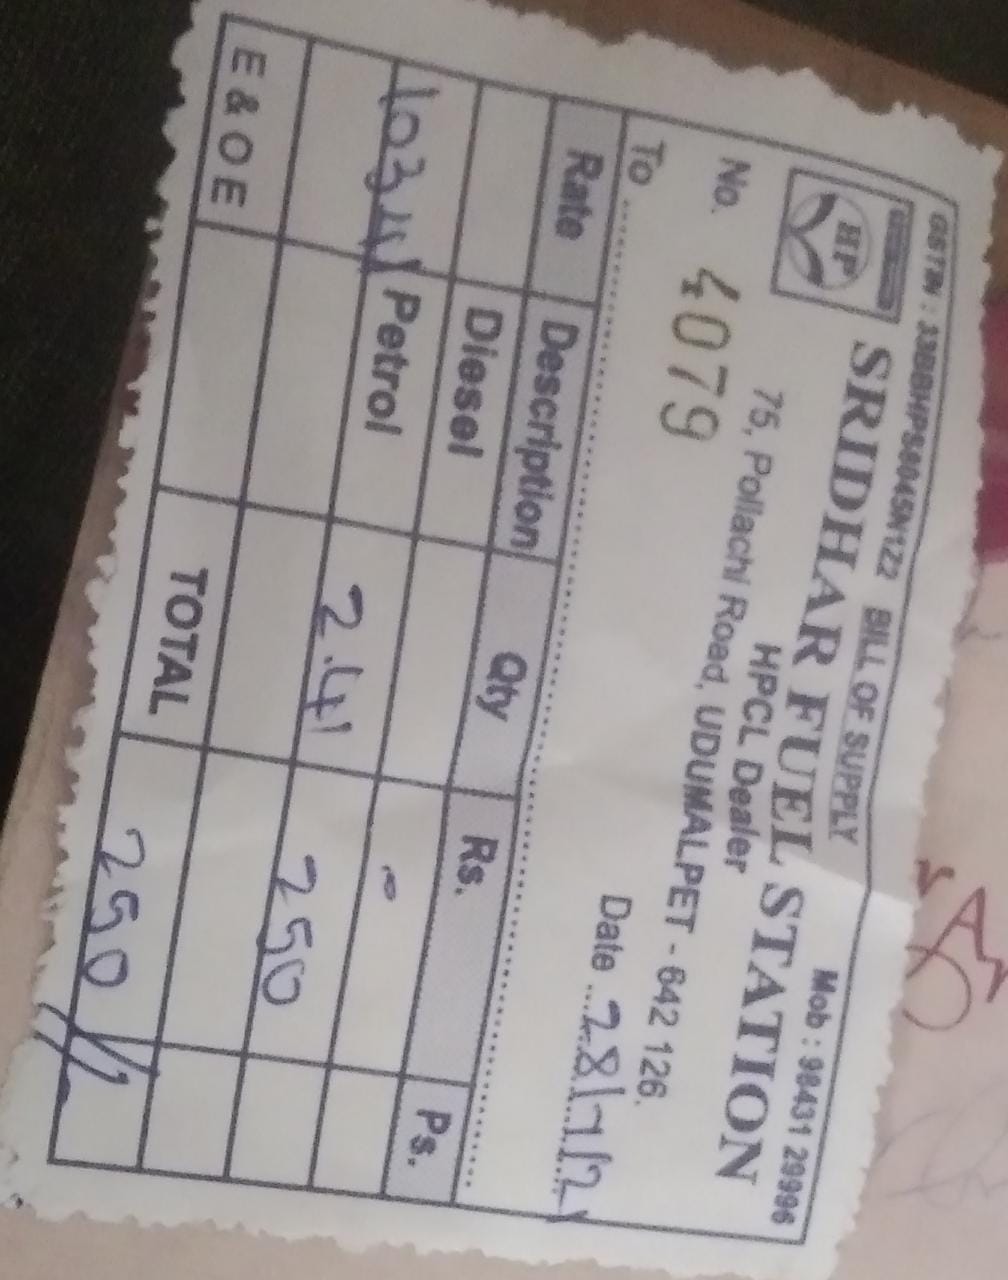 BILL OF SUPPLY
Mob : 98431 29996
HP
SRIDHAR FUEL STATION
HPCL Dealer
75, Pollachi Road, UDUMALPET - 642 126.
No. 4079
Date 28/7/21
To
Rate Description Qty Rs. Ps.
Diesel -
Petrol 2.41 250
E & O E TOTAL 250